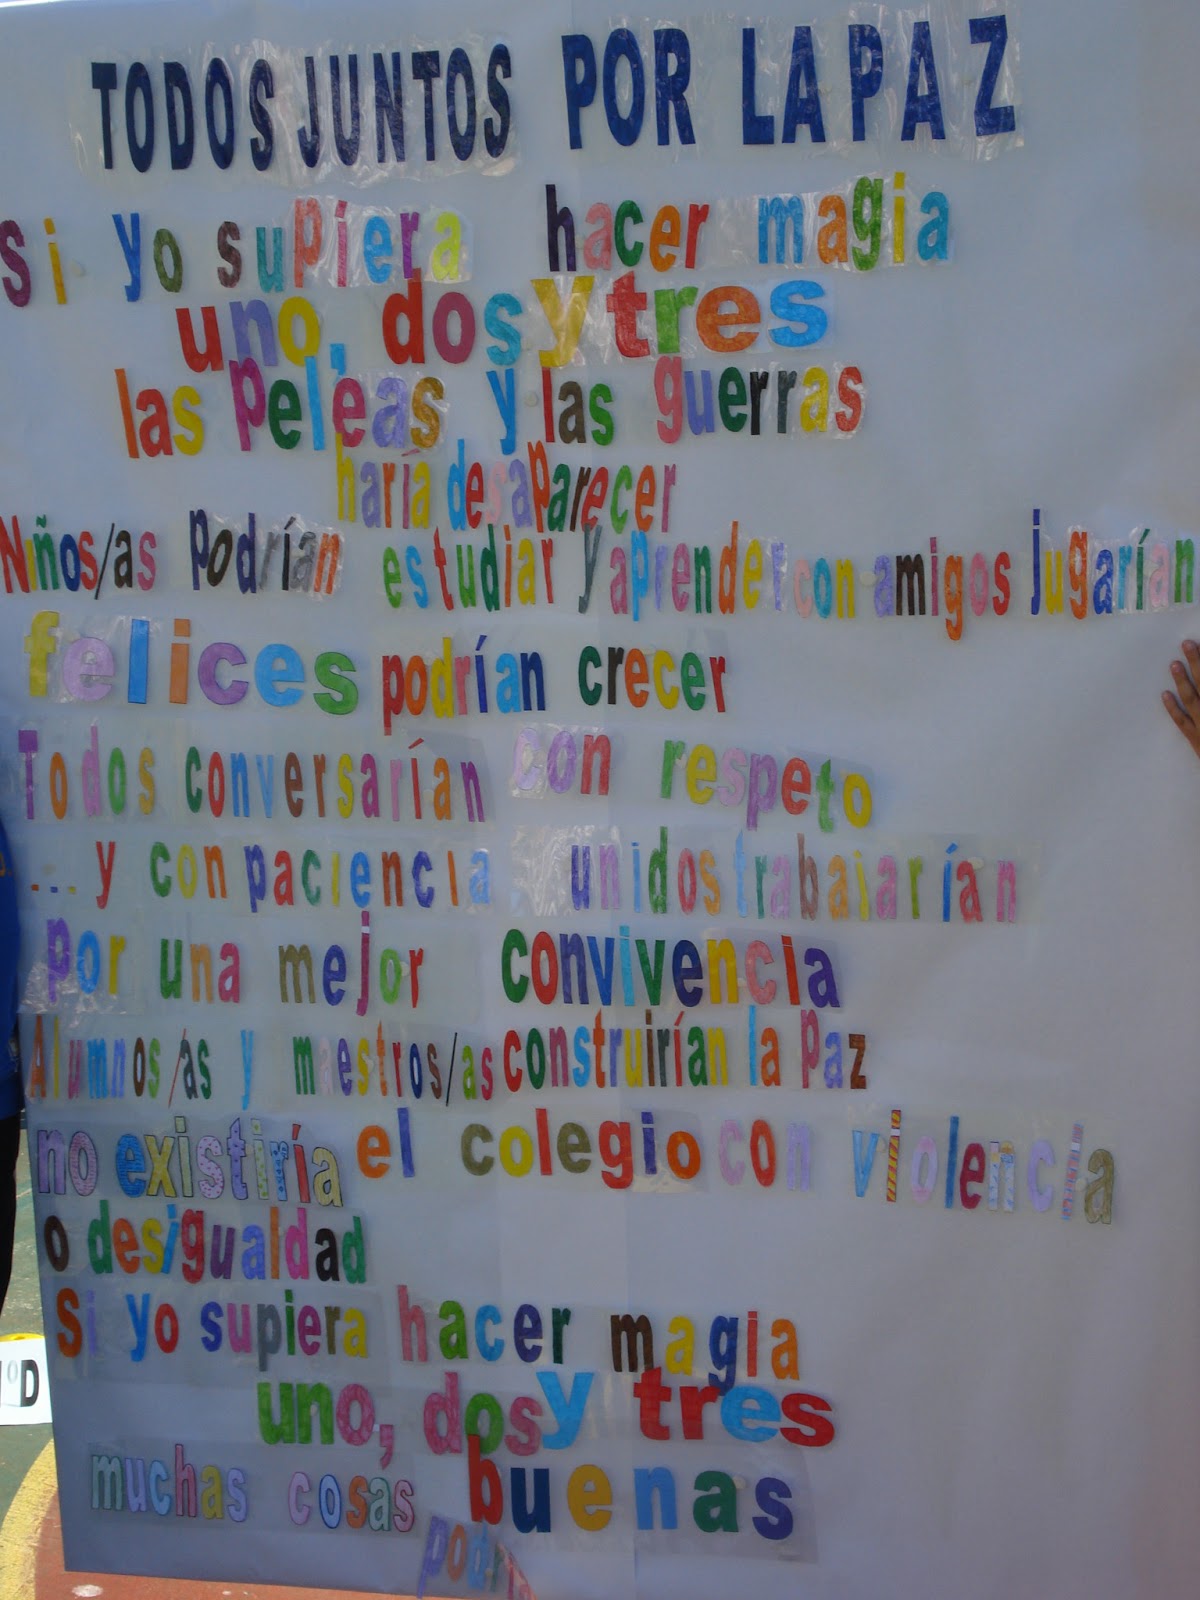 TODOS JUNTOS POR LA PAZ
Si yo supiera hacer magia
uno, dos y tres
las peleas y las guerras
haría desaparecer
Niños/as podrían estudiar y aprender con amigos jugarían
felices podrían crecer
Todos conversarían con respeto
...y con paciencia unidos trabaiarían
por una mejor convivencia
Alumnos/as y maestros/as construirían la Paz
no existiría el colegio con violencia
o desigualdad
Si yo supiera hacer magia
uno, dos y tres
muchas cosas buenas
podrí
ºD